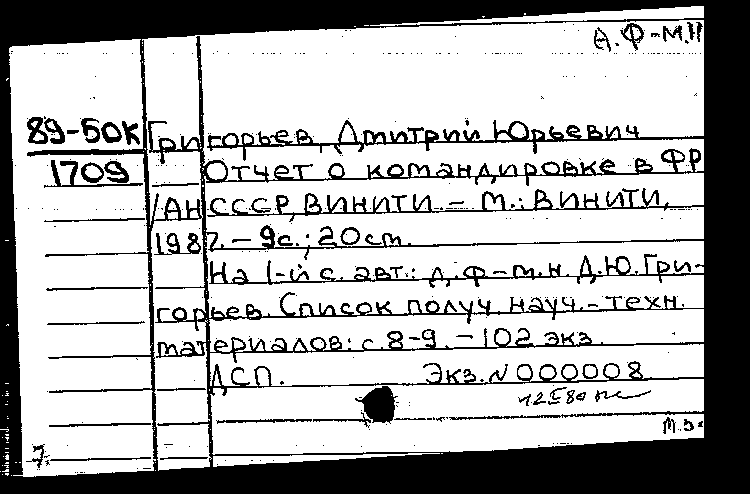 А.Ф-М.Н
89-50К Григорьев, Дмитрий Юрьевич
1709 Отчет о командировке в ФР
/АН СССР, ВИНИТИ. – М.: ВИНИТИ,
1987. – 9с.; 20ст.
На 1-й с. авт.: д.ф-м.н. Д.Ю.Гри-
горьев. Список получ. науч.-техн.
материалов: с.8-9. – 102 экз.
ДСП. Экз.N 000008
7.